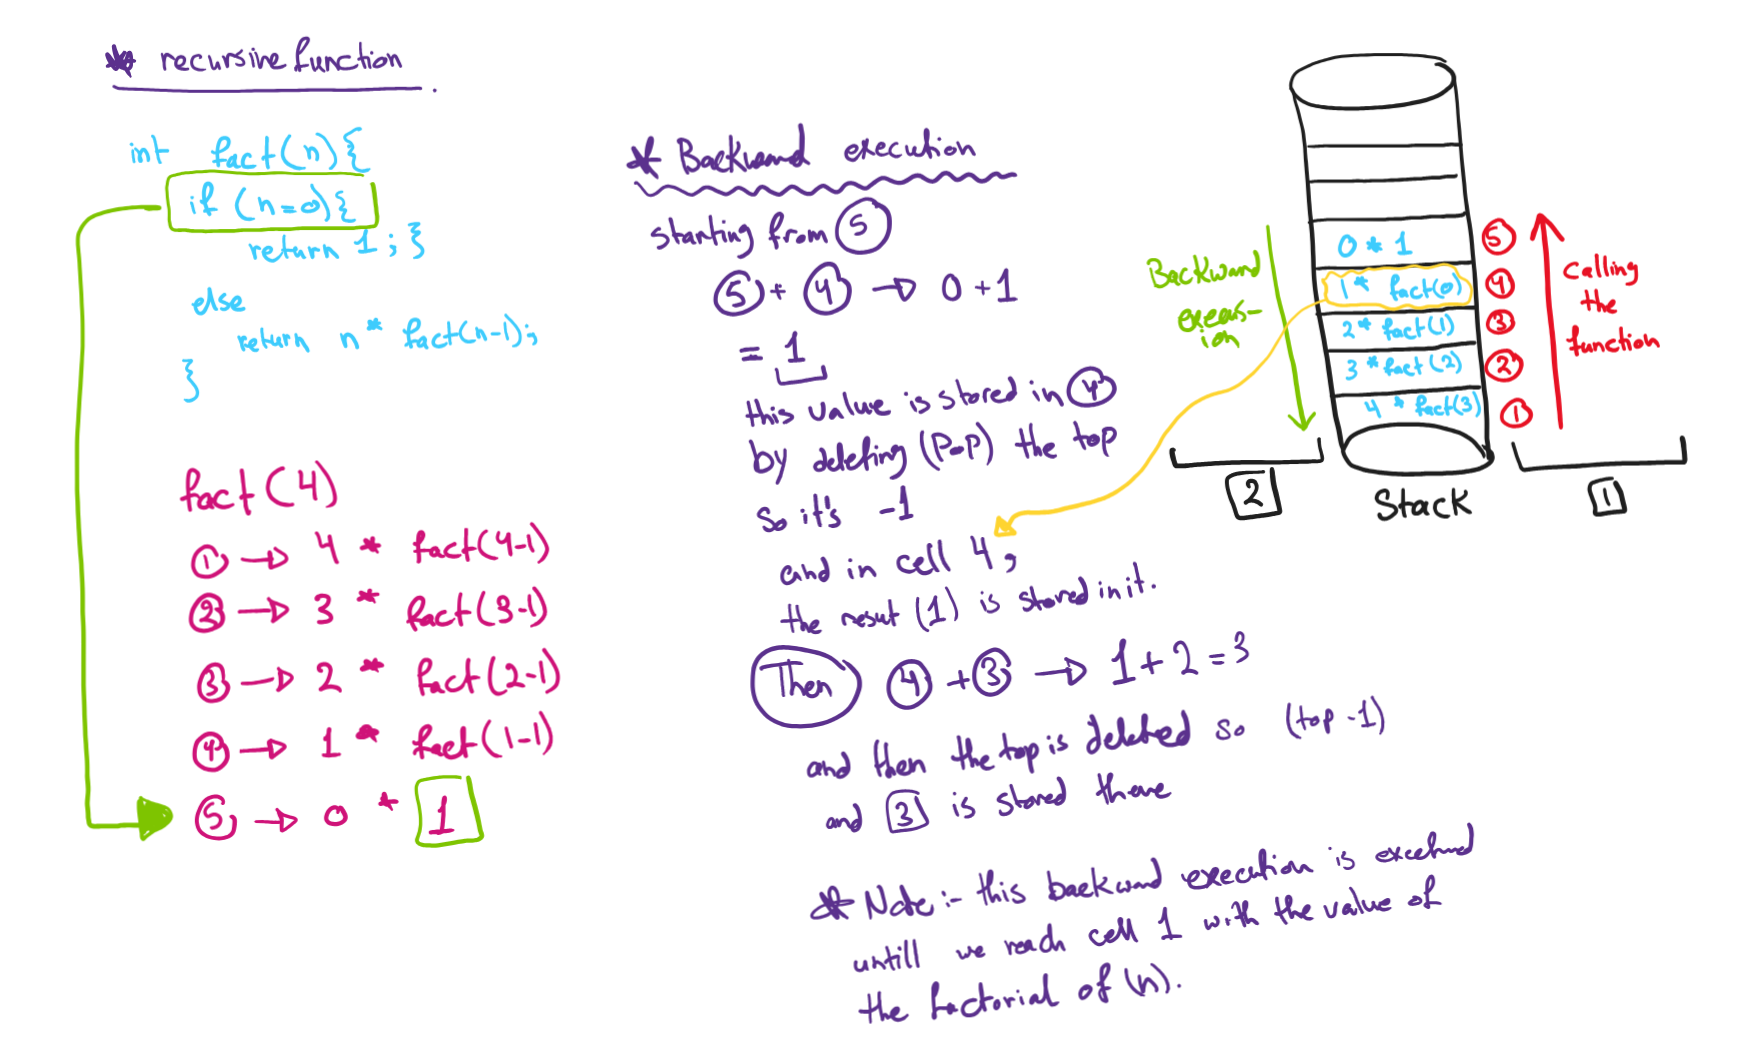 * recursive function
int fact(n){
if (n=0){
return 1 ; }
else
return n * fact(n-1);
}
fact(4)
① → 4 * fact(4-1)
② → 3 * fact(3-1)
③ → 2 * fact(2-1)
④ → 1 * fact(1-1)
⑤ → 0 * 1
* Backward execution
starting from ⑤
⑤ + ④ → 0 + 1
= 1
this value is stored in ④
by deleting (POP) the top
So it's -1
and in cell 4,
the resut (1) is stored in it.
Then ④ + ③ → 1 + 2 = 3
and then the top is deleted so (top -1)
and 3 is stored there
* Note :- this backward execution is
untill we reach cell 1 with the value of
the factorial of (n).
Backward
0 * 1 ⑤
1 * fact(0) ④
2 * fact(1) ③
3 * fact(2) ②
4 * fact(3) ①
calling
the
function
2
Stack
1